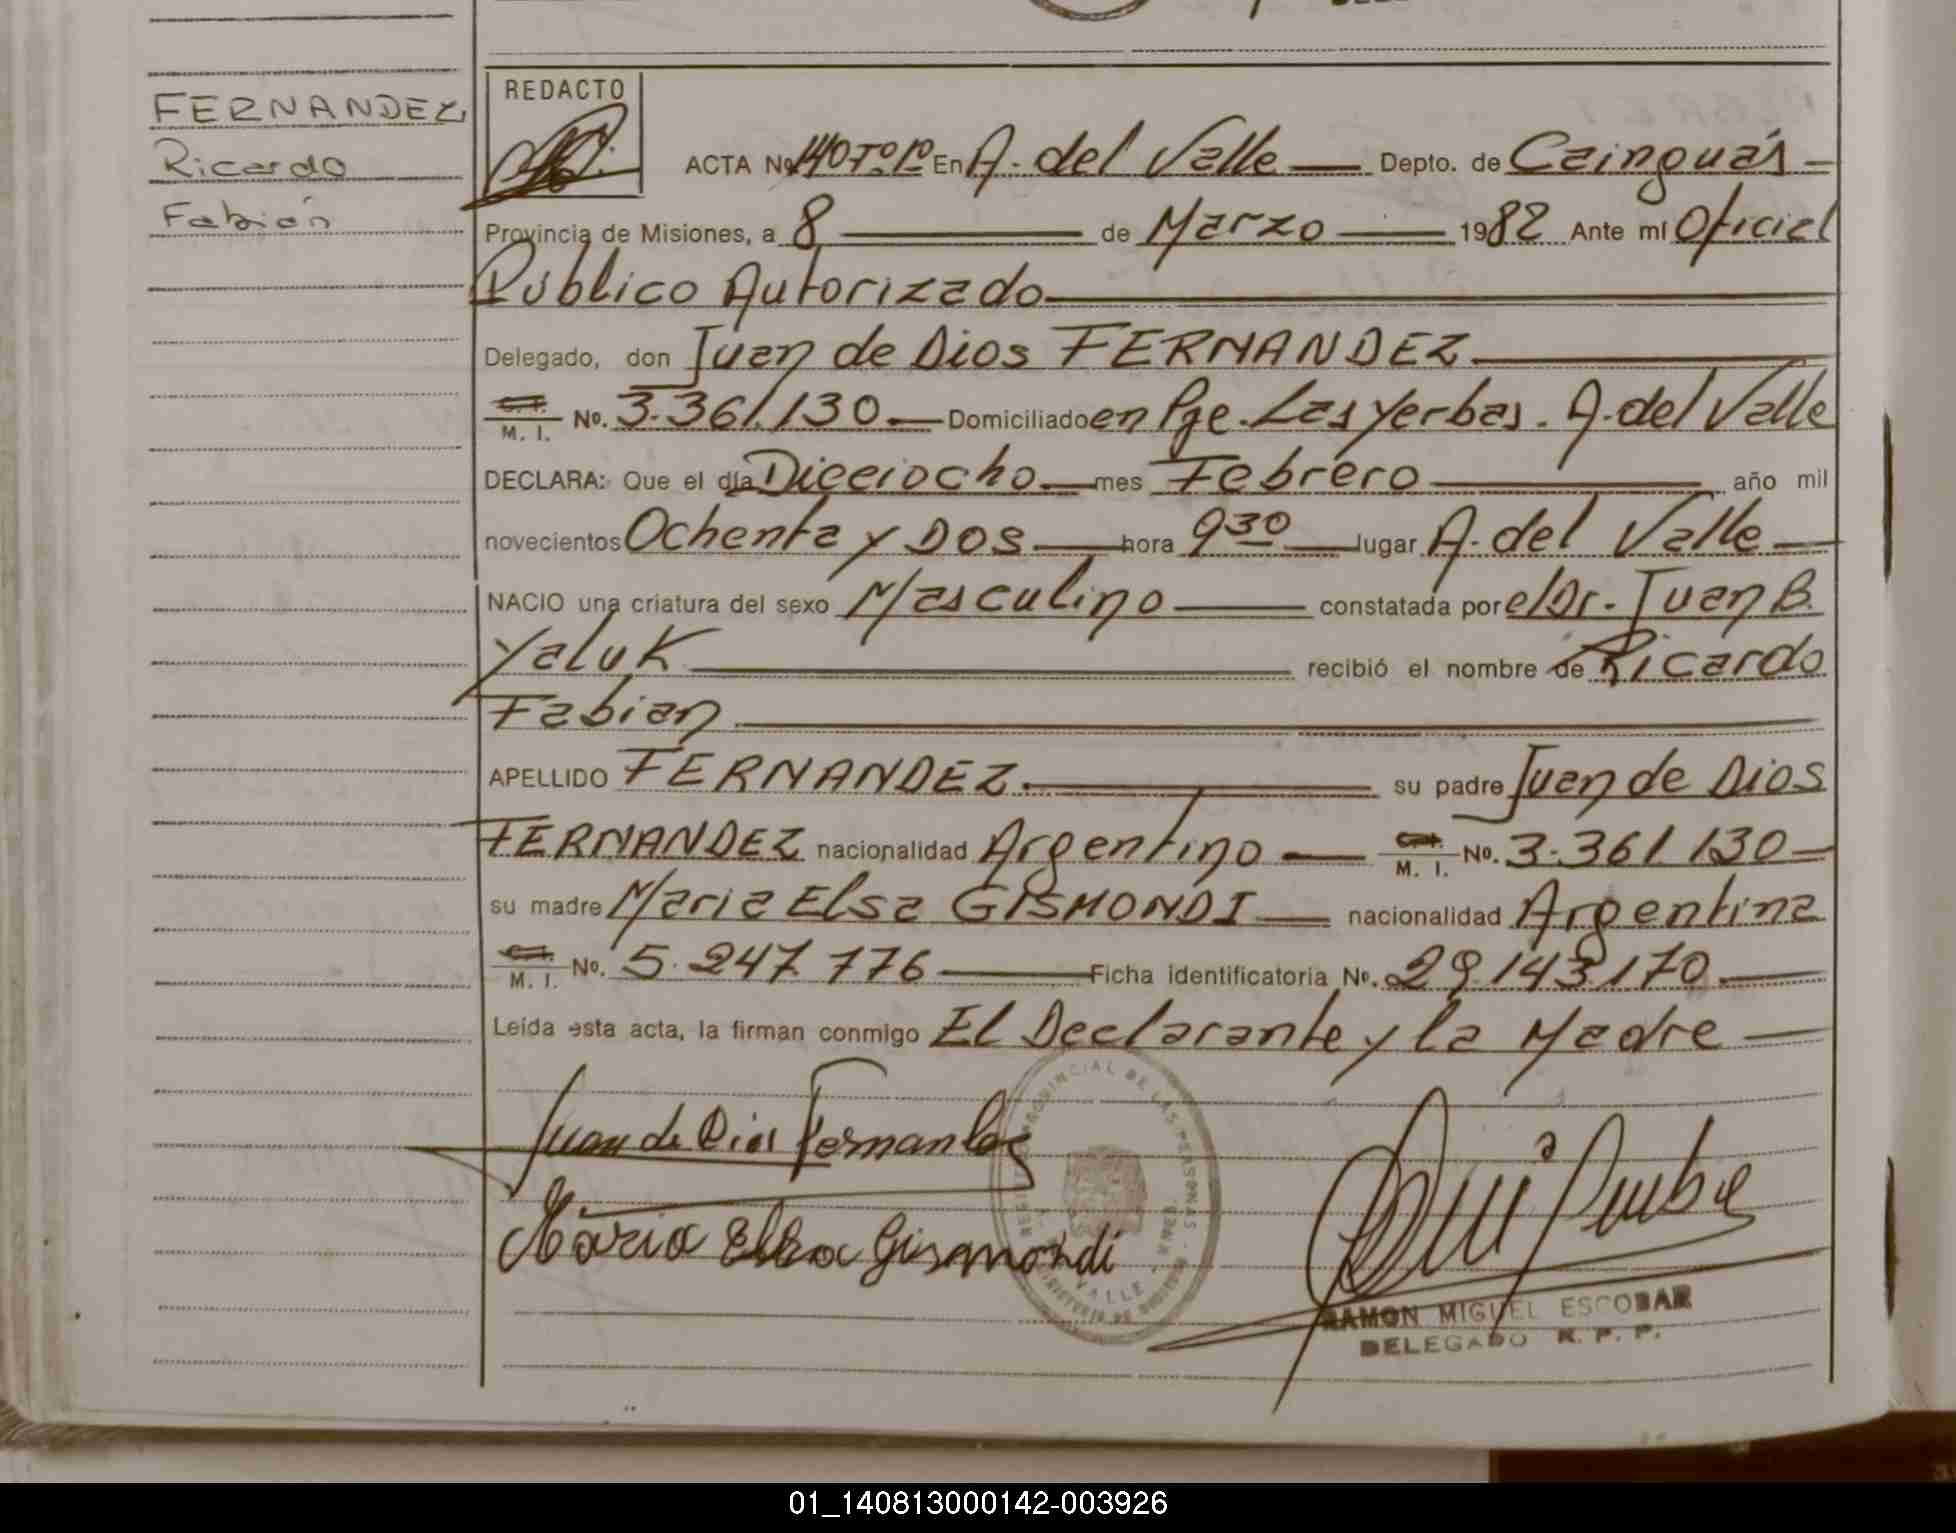 FERNANDEZ
Ricardo
Fabián
REDACTO
ACTA Nº 140 Tº 1º En A. del Valle Depto. de Cainguás
Provincia de Misiones, a 8 de Marzo 1982 Ante mí Oficial
Público Autorizado
Delegado, don Juan de Dios FERNANDEZ
C. I. M. I. No. 3.361.130 Domiciliado en Pje. Las Yerbas. A. del Valle
DECLARA: Que el día Dieciocho mes Febrero año mil
novecientos Ochenta y Dos hora 9 30 lugar A. del Valle
NACIO una criatura del sexo Masculino constatada por el Dr. Juan B.
Yaluk recibió el nombre de Ricardo
Fabian
APELLIDO FERNANDEZ su padre Juan de Dios
FERNANDEZ nacionalidad Argentino C. I. M. I. No. 3.361 130
su madre Maria Elsa GISMONDI nacionalidad Argentina
C. I. M. I. No. 5.247.776 Ficha identificatoria No. 29.143.170
Leída esta acta, la firman conmigo El Declarante y la Madre
Juan de Dios Fernandez
Maria Elsa Gismondi
PROVINCIAL DE LAS PERSONAS
VALLE
RAMON MIGUEL ESCOBAR
DELEGADO R. P. P.
01_140813000142-003926